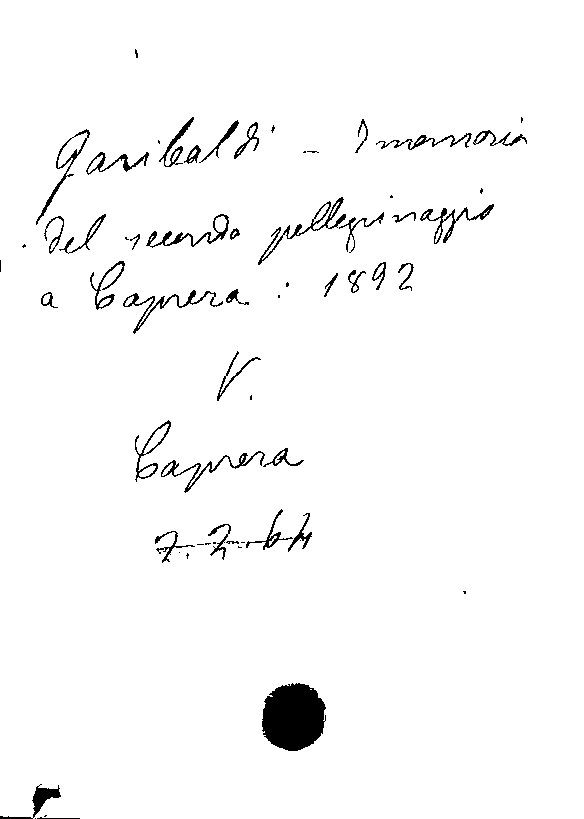 Garibaldi - In memoria
del secondo pellegrinaggio
a Caprera : 1892
V.
Caprera
7.2.64